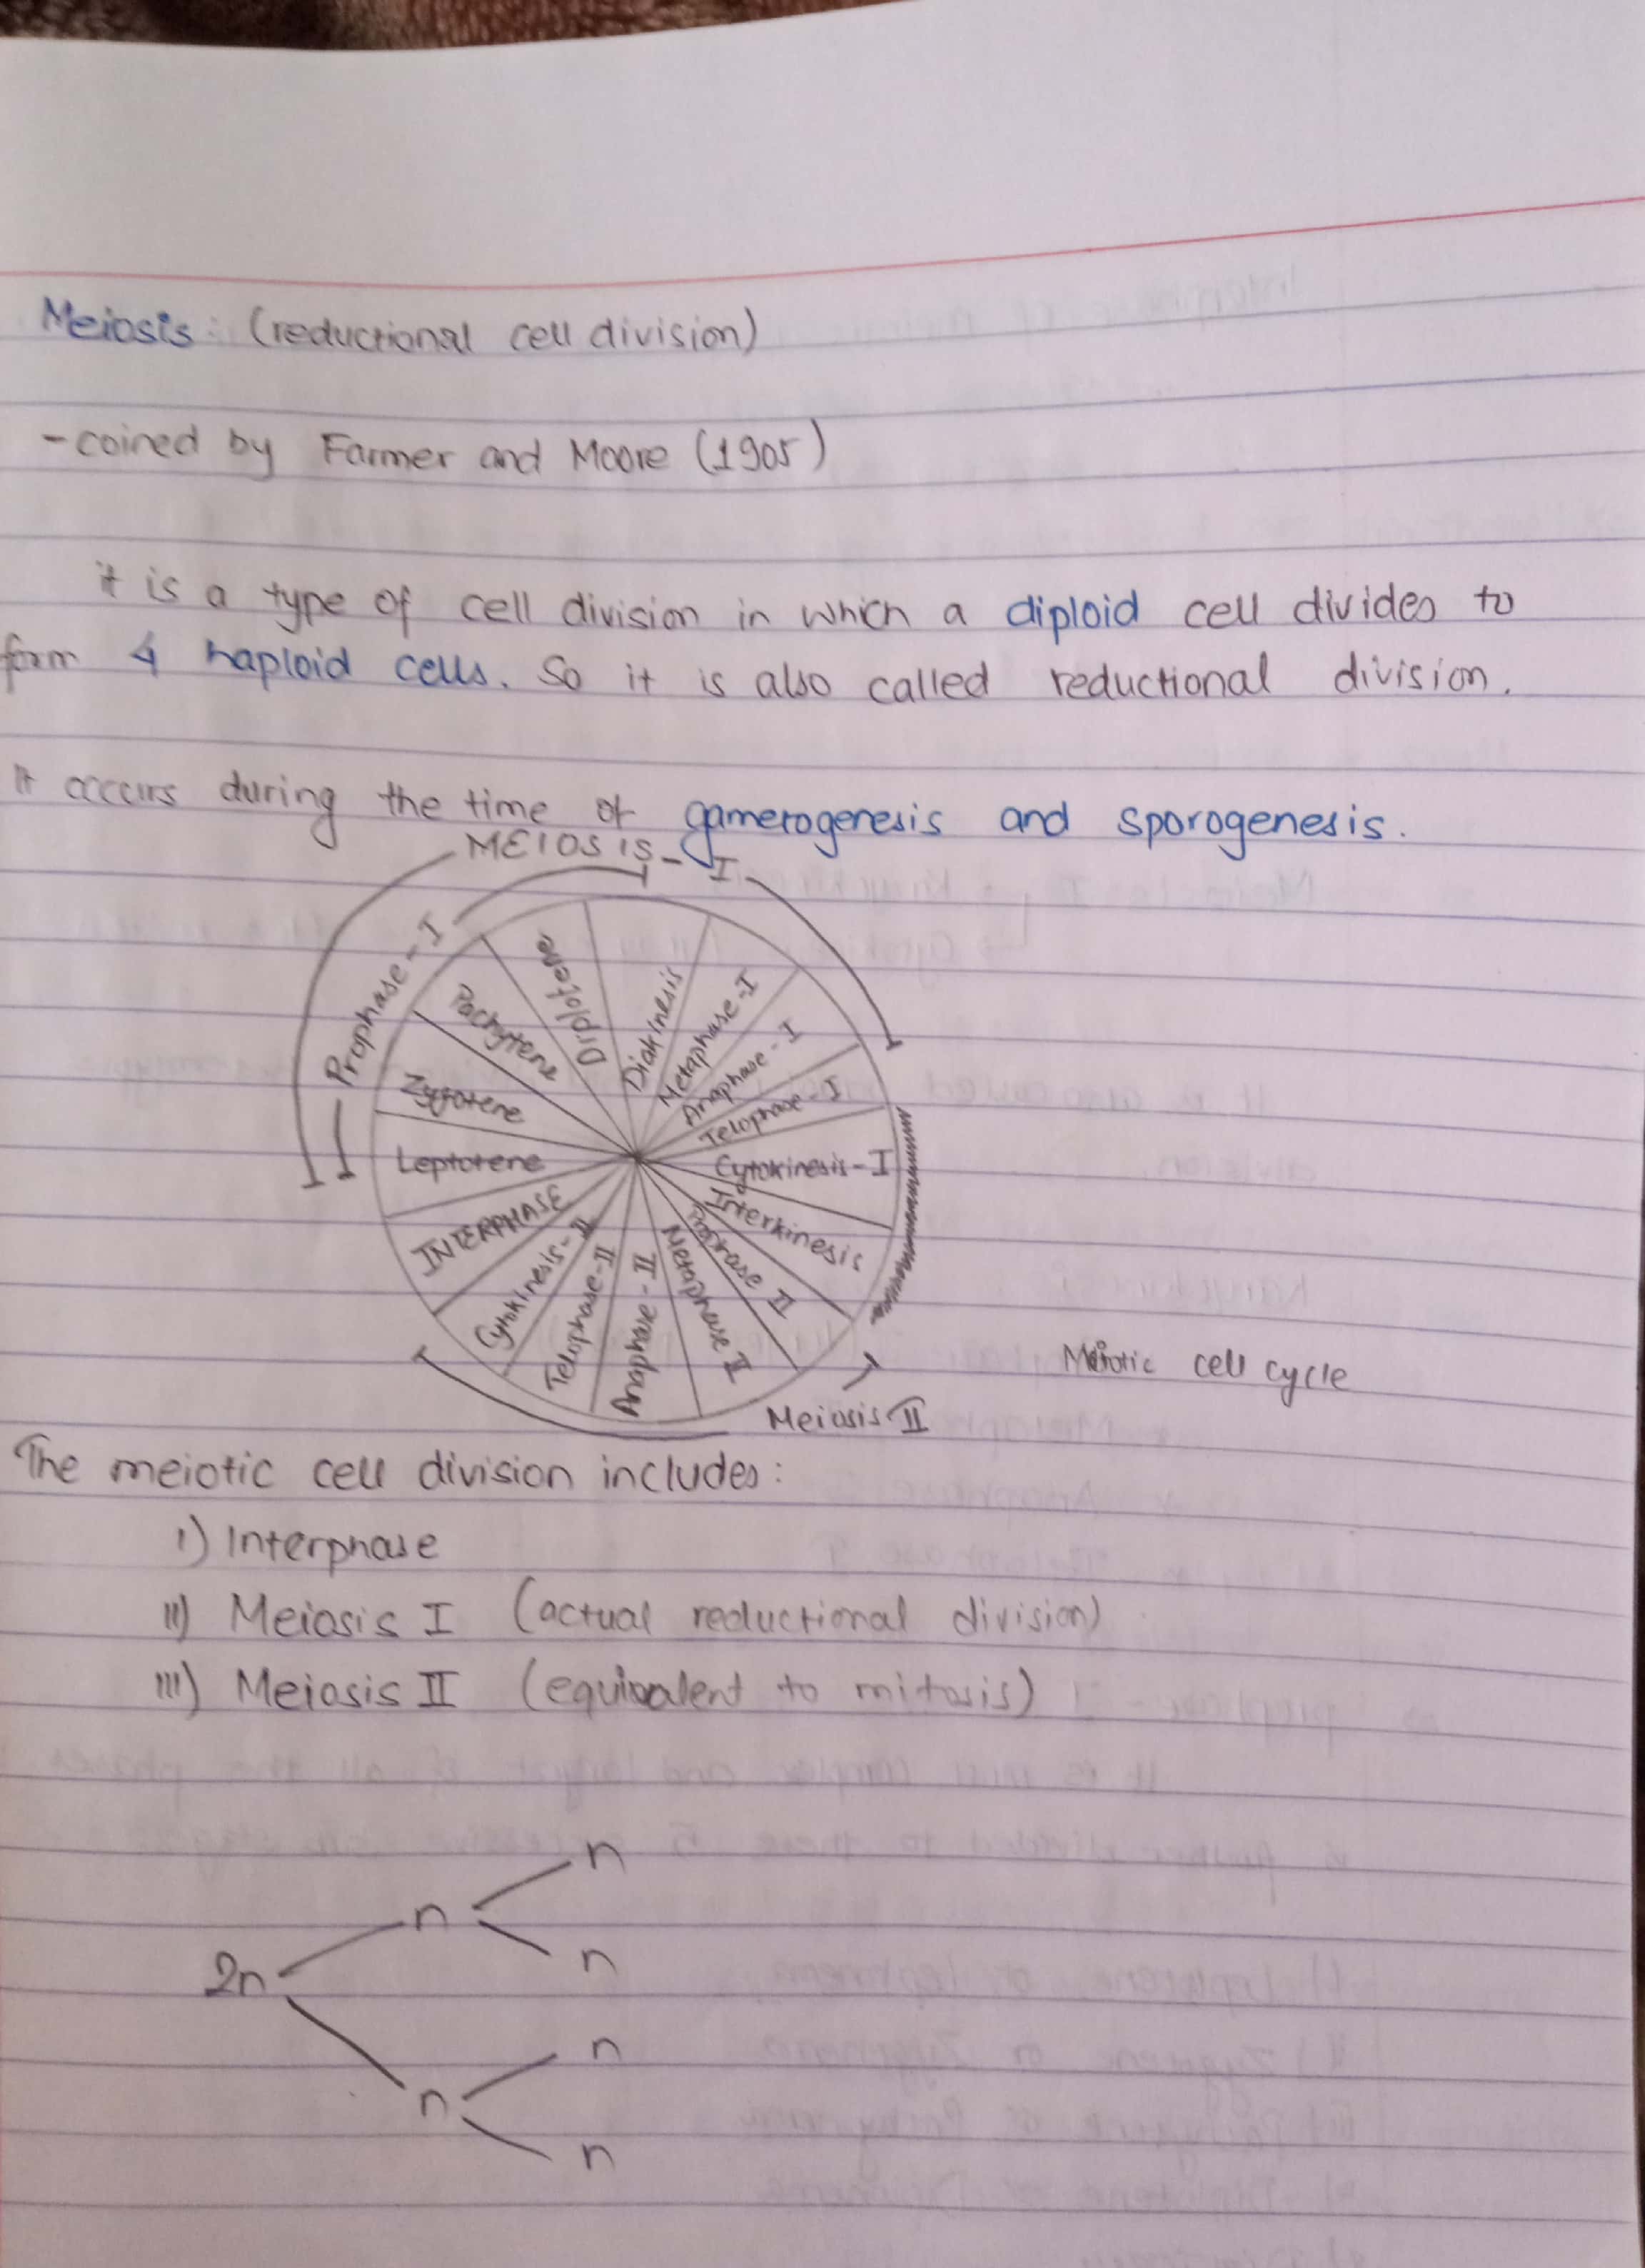 Meiosis: (reductional cell division)
- coined by Farmer and Moore (1905)
it is a type of cell division in which a diploid cell divides to
form 4 haploid cells. So it is also called reductional division.
It occurs during the time of gametogenesis and sporogenesis.
MEIOSIS - I
Prophase - I
Leptotene
Zygotene
Pachytene
Diplotene
Diakinesis
Metaphase - I
Anaphase - I
Telophase - I
Cytokinesis - I
Interkinesis
Prophase II
Metaphase II
Anaphase - II
Telophase - II
Cytokinesis - II
INTERPHASE
Meiosis II
Meiotic cell cycle
The meiotic cell division includes:
i) Interphase
ii) Meiosis I (actual reductional division)
iii) Meiosis II (equivalent to mitosis)
n
n
n
2n
n
n
n